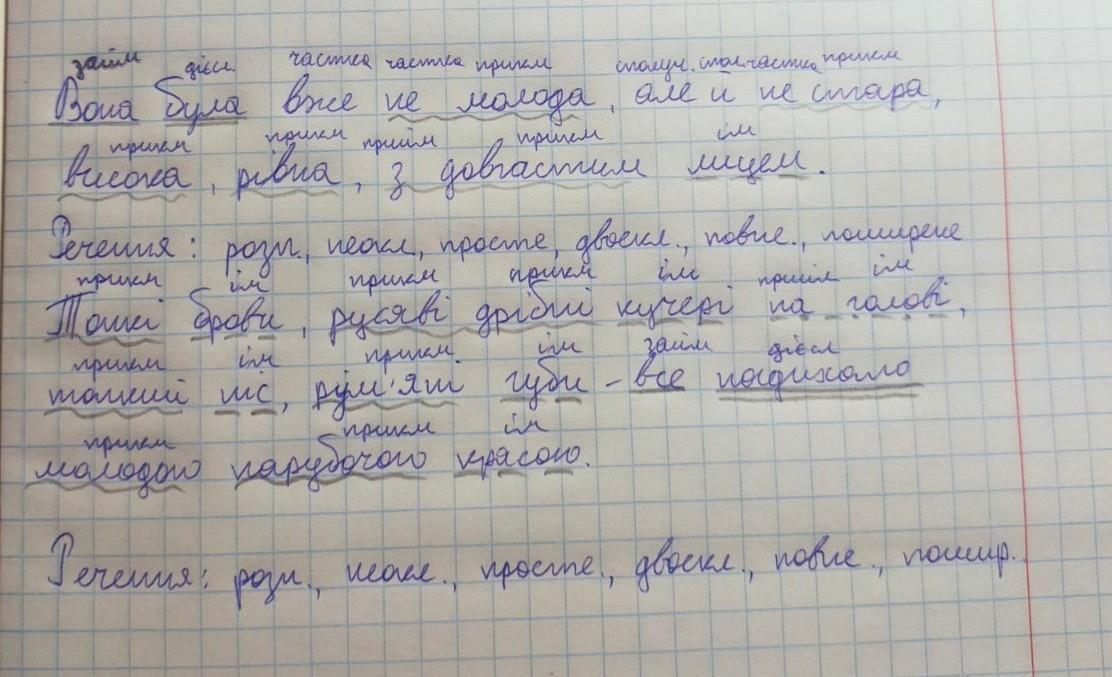 займ дієсл. частка частка прикм сполуч. спол. частка прикм
Вона була вже не молода, але й не стара,
прикм прикм прийм прикм ім
висока, рівна, з довгастим лицем.
Речення: розп., неокл., просте, двоскл., повне., поширене
прикм ім прикм прикм ім прийм ім
Тонкі брови, русяві дрібні кучері на голові,
прикм ім прикм. ім займ дієсл
тонкий ніс, рум'яні губи – все подихало
прикм прикм ім
молодою парубочою красою.
Речення: розп., неокл., просте., двоскл., повне., пошир.